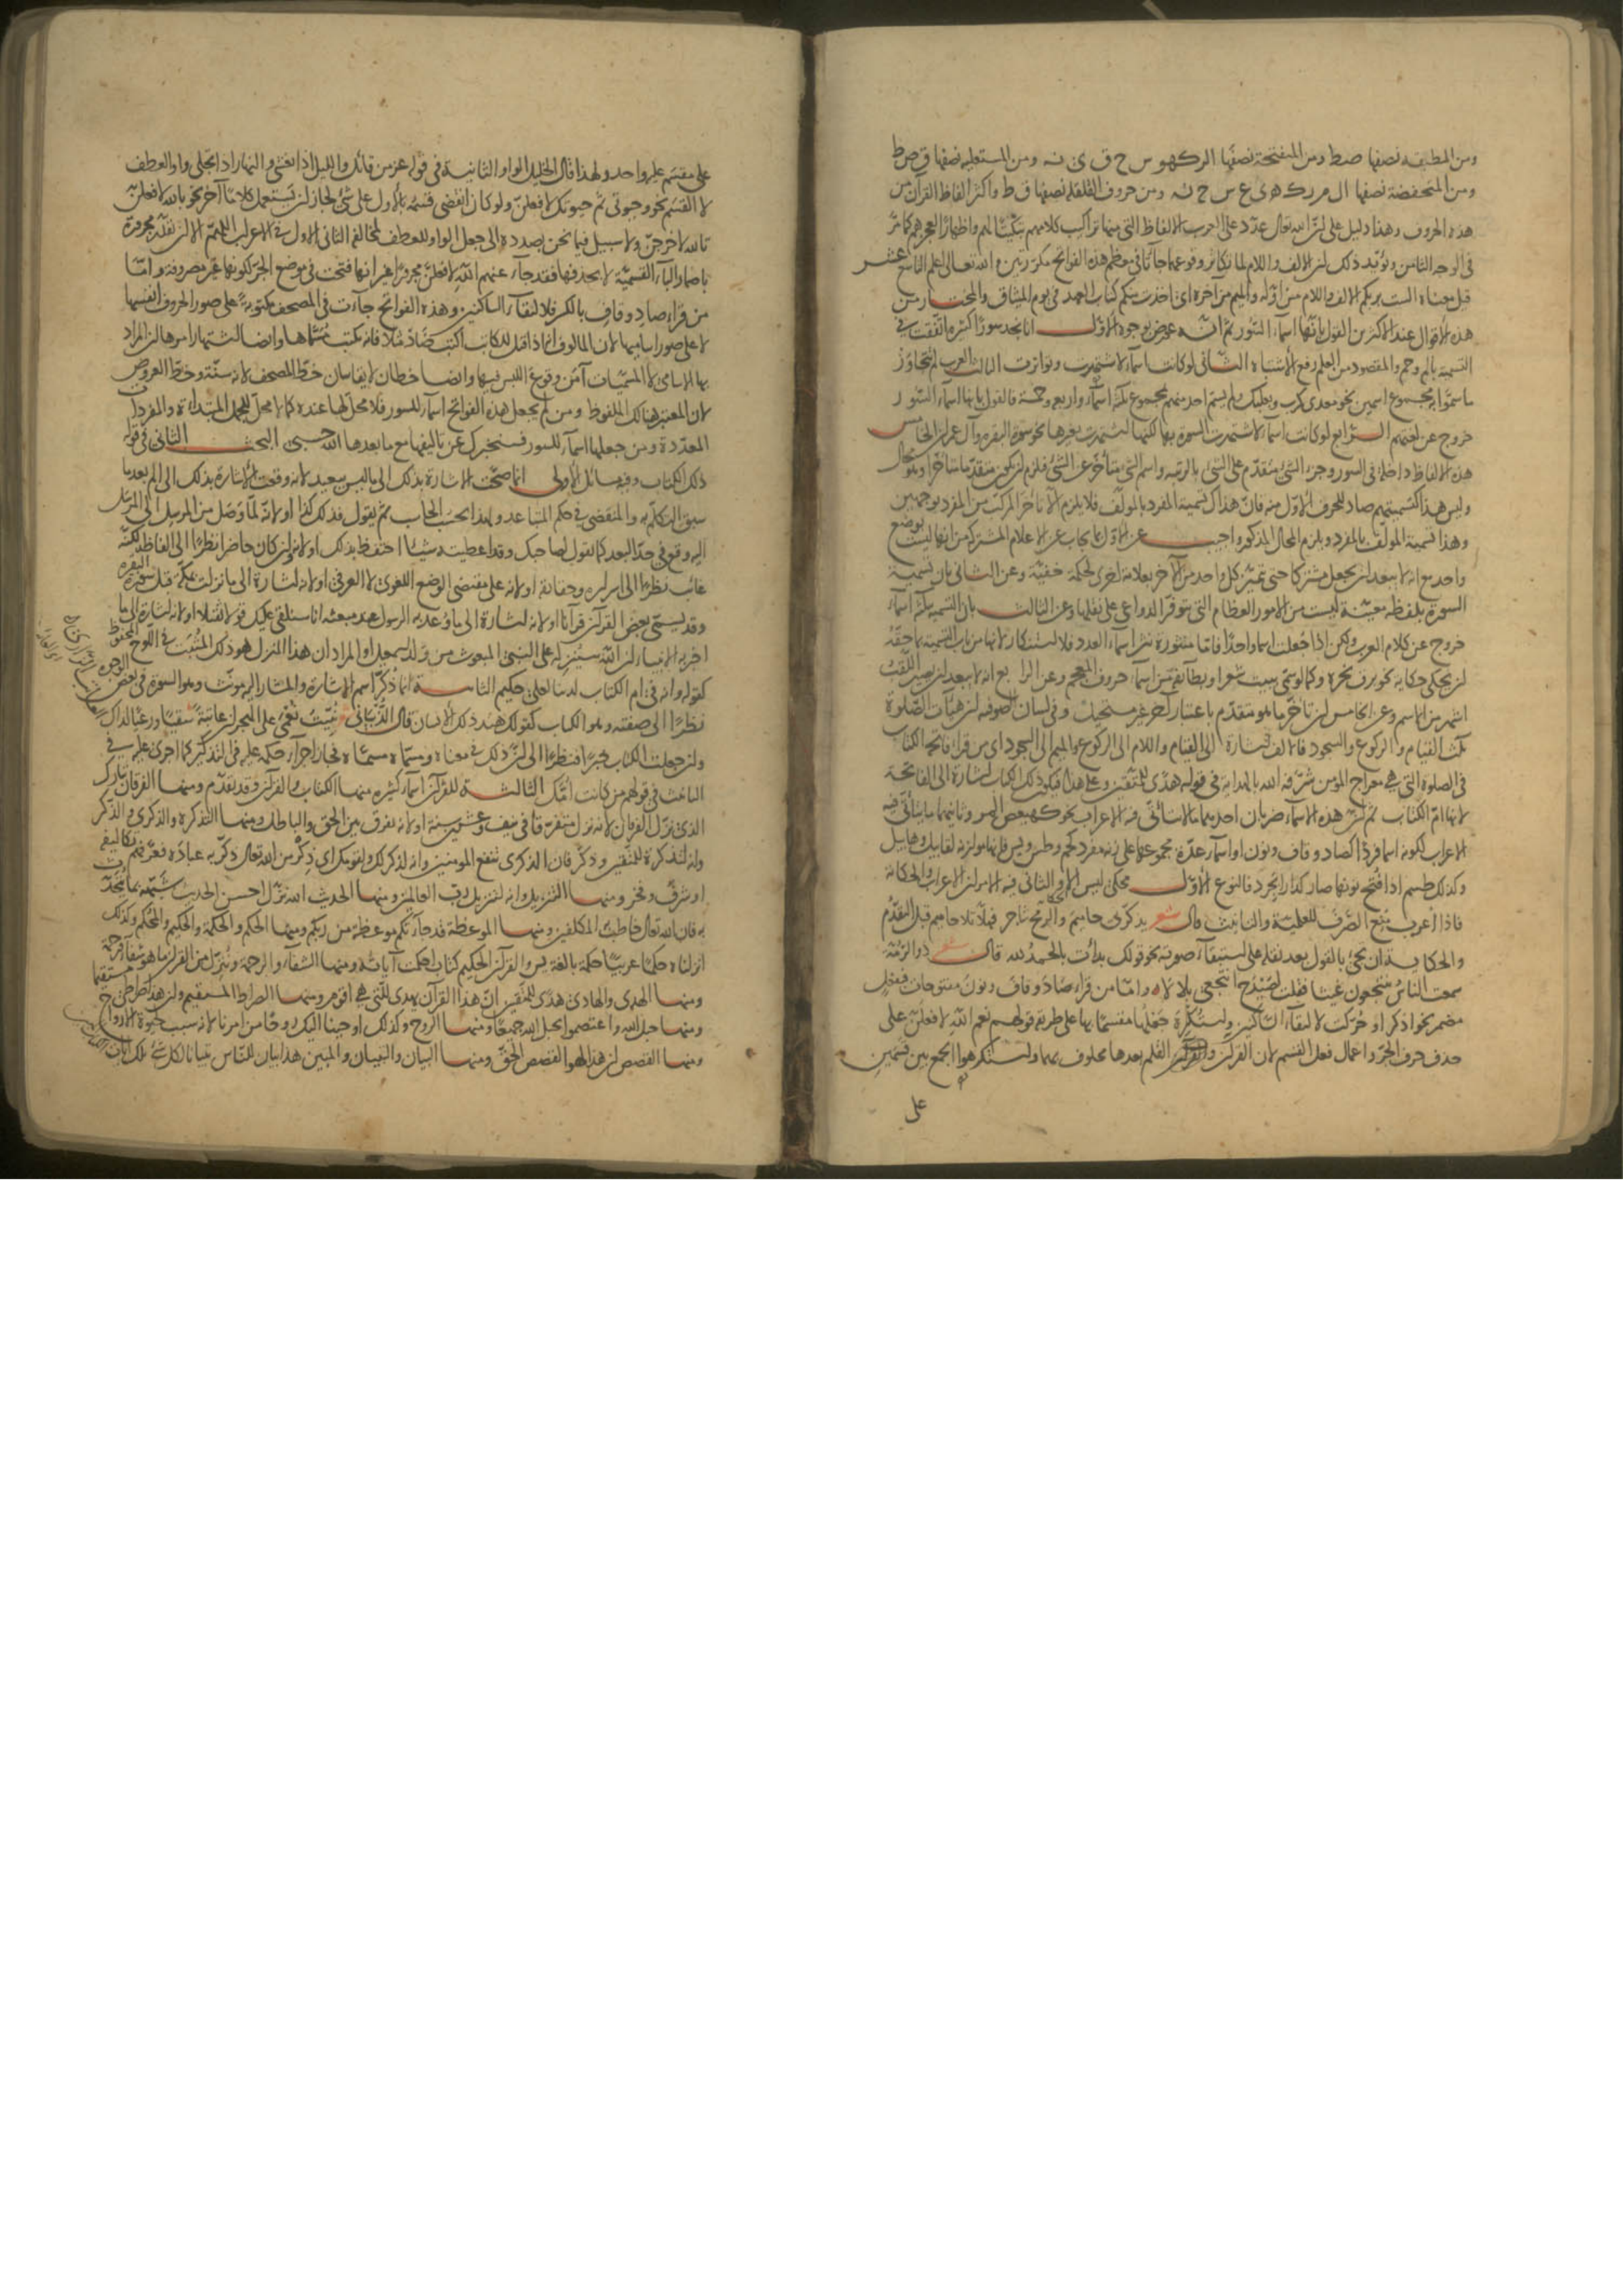 ومن المطبقة نصفها ص ط ومن المنفتحة نصفها ال ر ك ه و س ح ق ى ن ومن المستعلية نصفها ق ص ط
ومن المنخفضة نصفها ال م ر ك ه ى ع س ح ن ومن حروف القلقلة نصفها ق ط واكثر الفاظ القرآن من
هذه الحروف وهذا دليل على ان الله تعالى عدد على العرب الالفاظ التى منها تراكيب كلامهم تبكيتا لهم واظهارا لعجزهم كما مر
فى الوجه الثامن ويؤيد ذلك ان الالف واللام لما تكاثر وقوعهما جاءتا فى معظم هذه الفواتح مكررتين والله تعالى اعلم التاسع عشر
قيل معناه الست بربكم الالف واللام من اوله والميم من آخره اى اخذت منكم كتاب العهد فى يوم الميثاق والمختار من
هذه الاقوال عند الاكثرين القول بانها اسماء السور ثم انه عورض بوجوه الاول انا نجد سورا كثيرة اتفقت فى
التسمية بالم وحم والمقصود من العلم رفع الاشتباه الثانى لو كانت اسماء لاشتهرت وتواترت الثالث العرب لم تتجاوز
ما سموا به مجموع اسمين نحو معدى كرب وبعلبك ولم يسم احد منهم بمجموع ثلثة اسماء واربعة وخمسة فالقول بانها اسماء السور
خروج عن لغتهم الرابع لو كانت اسماء لاشتهرت السورة بها لكنها اشتهرت بغيرها نحو سورة البقرة وآل عمران الخامس
هذه الالفاظ داخلة فى السور وجزء الشئ متقدم على الشئ بالرتبة واسم الشئ متأخر عن الشئ فلزم ان يكون متقدما متأخرا وهو محال
وليس هذا كتسميتهم صاد للحرف الاول منه فان هذاك تسمية المفرد بالمؤلف فلا يلزم الا تأخر المركب من المفرد بوجهين
وهذا تسمية المؤلف بالمفرد ويلزم المحال المذكور واجيب عن الاول بما يجاب عن الاعلام المشتركة من انها ليست بوضع
واحد مع انه لا يبعد ان يجعل مشتركا حتى تميز كل واحد من الآخر بعلامة اخرى لحكمة خفية وعن الثانى بان تسمية
السورة بلفظة معينة ليست من الامور العظام التى تتوفر الدواعى على نقلها وعن الثالث بان التسمية بثلثة اسماء
خروج عن كلام العرب ولكن اذا جعلت اسما واحدا فاما منثورة نثر اسماء العدد فلا استنكار لانها من باب التسمية بما حقه
ان يحكى حكاية نحو برق نحره وكما لو سمى ببيت شعر او بطائفة من اسماء حروف المعجم وعن الرابع انه لا يبعد ان يصير اللقب
اشهر من الاسم وعن الخامس ان تأخر ما هو متقدم باعتبار آخر غير مستحيل وفى لسان الصوفية ان هيآت الصلوة
ثلث القيام والركوع والسجود فالالف اشارة الى القيام واللام الى الركوع والميم الى السجود اى من قرأ فاتحة الكتاب
فى الصلوة التى هى معراج المؤمن شرفه الله بالهداية فى قوله هدى للمتقين وعلى هذا فيكون ذلك الكتاب اشارة الى الفاتحة
لانها ام الكتاب ثم ان هذه الاسماء ضربان احدهما ما لا يتأتى فيه الاعراب نحو كهيعص المر وثانيهما ما يتأتى فيه
الاعراب لكونه اسما فردا كصاد وقاف ونون او اسماء عدة مجموعها على زنة مفرد كحم وطس ويس فانها موازنة لقابيل وهابيل
وكذلك طسم اذا فتح نونها صار كدارابجرد فالنوع الاول محكى ليس الا والثانى فيه الامران الاعراب والحكاية
فاذا اعرب منع الصرف للعلمية والتانيث قال شعر يذكرنى حاميم والرمح شاجر فهلا تلا حاميم قبل التقدم
والحكاية ان تجئ بالقول بعد نقله على استبقاء صورته نحو قولك بدأت بالحمد لله قال شعر ذو الرمة
سمعت الناس ينتجعون غيثا فقلت لصيدح انتجعى بلالا واما من قرأ صاد وقاف ونون مفتوحات ففعل
مضمر نحو اذكر او حركت لالتقاء الساكنين واستكره جعلها مقسما بها على طريقة قولهم نعم الله لافعلن على
حذف حرف الجر واعمال فعل القسم لان القرآن والقلم بعدها محلوف بهما واستكرهوا الجمع بين قسمين
على
على مقسم عليه واحد ولهذا قال الخليل الواو الثانية فى قوله عز من قائل والليل اذا يغشى والنهار اذا تجلى واو العطف
لا القسم نحو وحيوتى ثم حيوتك لافعلن ولو كان انقضى قسمه بالاول على شئ لجاز ان يستعمل كلاما آخر نحو بالله لافعلن
تالله لاخرجن ولا سبيل فيما نحن بصدده الى جعل الواو للعطف لمخالفة الثانى الاول فى الاعراب اللهم الا ان نقدر مجرورة
باضمار الباء القسمية لا بحذفها فقد جاء عنهم الله لافعلن مجرورا غير انها فتحت فى موضع الجر لكونها غير مصروفة واما
من قرأ صاد وقاف بالكسر فلالتقاء الساكنين وهذه الفواتح جاءت فى المصحف مكتوبة على صور الحروف انفسها
لا على صور اساميها لان المألوف انه اذا قيل للكاتب اكتب ضاد مثلا فانه يكتب مسماها وايضا اشتهار امرها ان المراد
بها الاسامى لا المسميات آمن وقوع اللبس فيها وايضا خطان لا يقاسان خط المصحف لانه سنة وخط العروض
لان المعتبر هنالك الملفوظ ومن لم يجعل هذه الفواتح اسماء للسور فلا محل لها عنده كما لا محل للجمل المبتدأة والمفردات
المعددة ومن جعلها اسماء للسور فسنخبرك عن تاليفها مع ما بعدها الله حسبى البحث الثانى فى قوله
ذلك الكتاب وفيه مسائل الاولى انما صحت الاشارة بذلك الى ما ليس ببعيد لانه وقعت الاشارة بذلك الى الم بعد ما
سبق التكلم به والمنقضى فى حكم المتباعد ولهذا يحسب الحاسب ثم يقول فذلك كذا او لانه لما وصل من المرسل الى المرسل
اليه وقع فى حد البعد كما تقول لصاحبك وقد اعطيته شيئا احتفظ بذلك او لانه وان كان حاضرا نظرا الى الفاظه لكنه
غائب نظرا الى اسراره وحقائقه او لانه على مقتضى الوضع اللغوى لا العرفى او لانه اشارة الى ما نزلت بمكة قبل سورة البقرة
وقد يسمى بعض القرآن قرآنا او لانه اشارة الى ما وعد به الرسول عند مبعثه انا سنلقى عليك قولا ثقيلا او لانه اشارة الى ما
اخبر به الانبياء ان الله سينزله على النبى المبعوث من ولد اسمعيل او المراد ان هذا المنزل هو ذلك المثبت فى اللوح المحفوظ
كقوله وانه فى ام الكتاب لدينا لعلى حكيم الثانية انما ذكر اسم الاشارة والمشار اليه مؤنث وهو السورة فى بعض الوجوه
نظرا الى صفته وهو الكتاب كقولك هند ذلك الانسان قال الذبيانى نبئت نعمى على الهجران عاتبة سقيا ورعيا لذاك
وان جعلت الكتاب خبرا فنظرا الى ان ذلك فى معناه ومسماه مسماه فجاز اجراء حكمه عليه فى التذكير كما اجرى عليه فى
التانيث فى قولهم من كانت امك الثالثة للقرآن اسماء كثيرة منها الكتاب والقرآن وقد تقدم ومنها الفرقان تبارك
الذى نزل الفرقان لانه نزل متفرقا فى نيف وعشرين سنة او لانه يفرق بين الحق والباطل ومنها التذكرة والذكرى والذكر
وانه لتذكرة للمتقين وذكر فان الذكرى تنفع المؤمنين وانه لذكر لك ولقومك اى ذكر من الله تعالى ذكر به عباده فعرفهم تكاليفه
او شرف وفخر ومنها التنزيل وانه لتنزيل رب العالمين ومنها الحديث الله نزل احسن الحديث شبهه بما يتحدث
به فان الله تعالى خاطب المكلفين ومنها الموعظة قد جاءتكم موعظة من ربكم ومنها الحكم والحكمة والحكيم والمحكم وكذلك
انزلناه حكما عربيا حكمة بالغة يس والقرآن الحكيم كتاب احكمت آياته ومنها الشفاء والرحمة وننزل من القرآن ما هو شفاء ورحمة
ومنها الهدى والهادى هدى للمتقين ان هذا القرآن يهدى للتى هى اقوم ومنها الصراط المستقيم وان هذا صراطى مستقيما
ومنها حبل الله واعتصموا بحبل الله جميعا ومنها الروح وكذلك اوحينا اليك روحا من امرنا لانه سبب حيوة الارواح
ومنها القصص ان هذا لهو القصص الحق ومنها البيان والتبيان والمبين هذا بيان للناس تبيانا لكل شئ تلك آيات